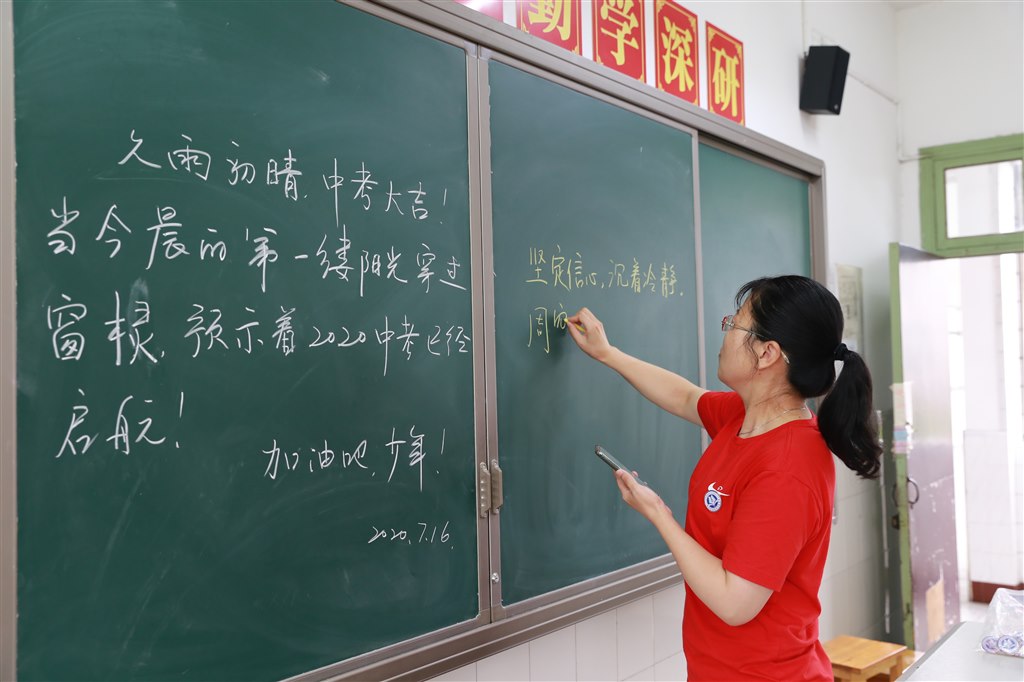 勤学深研
久雨初晴,中考大吉!
当今晨的第一缕阳光穿过
窗棂,预示着2020中考已经
启航!
加油吧,少年!
2020.7.16.
坚定信心,沉着冷静.
周